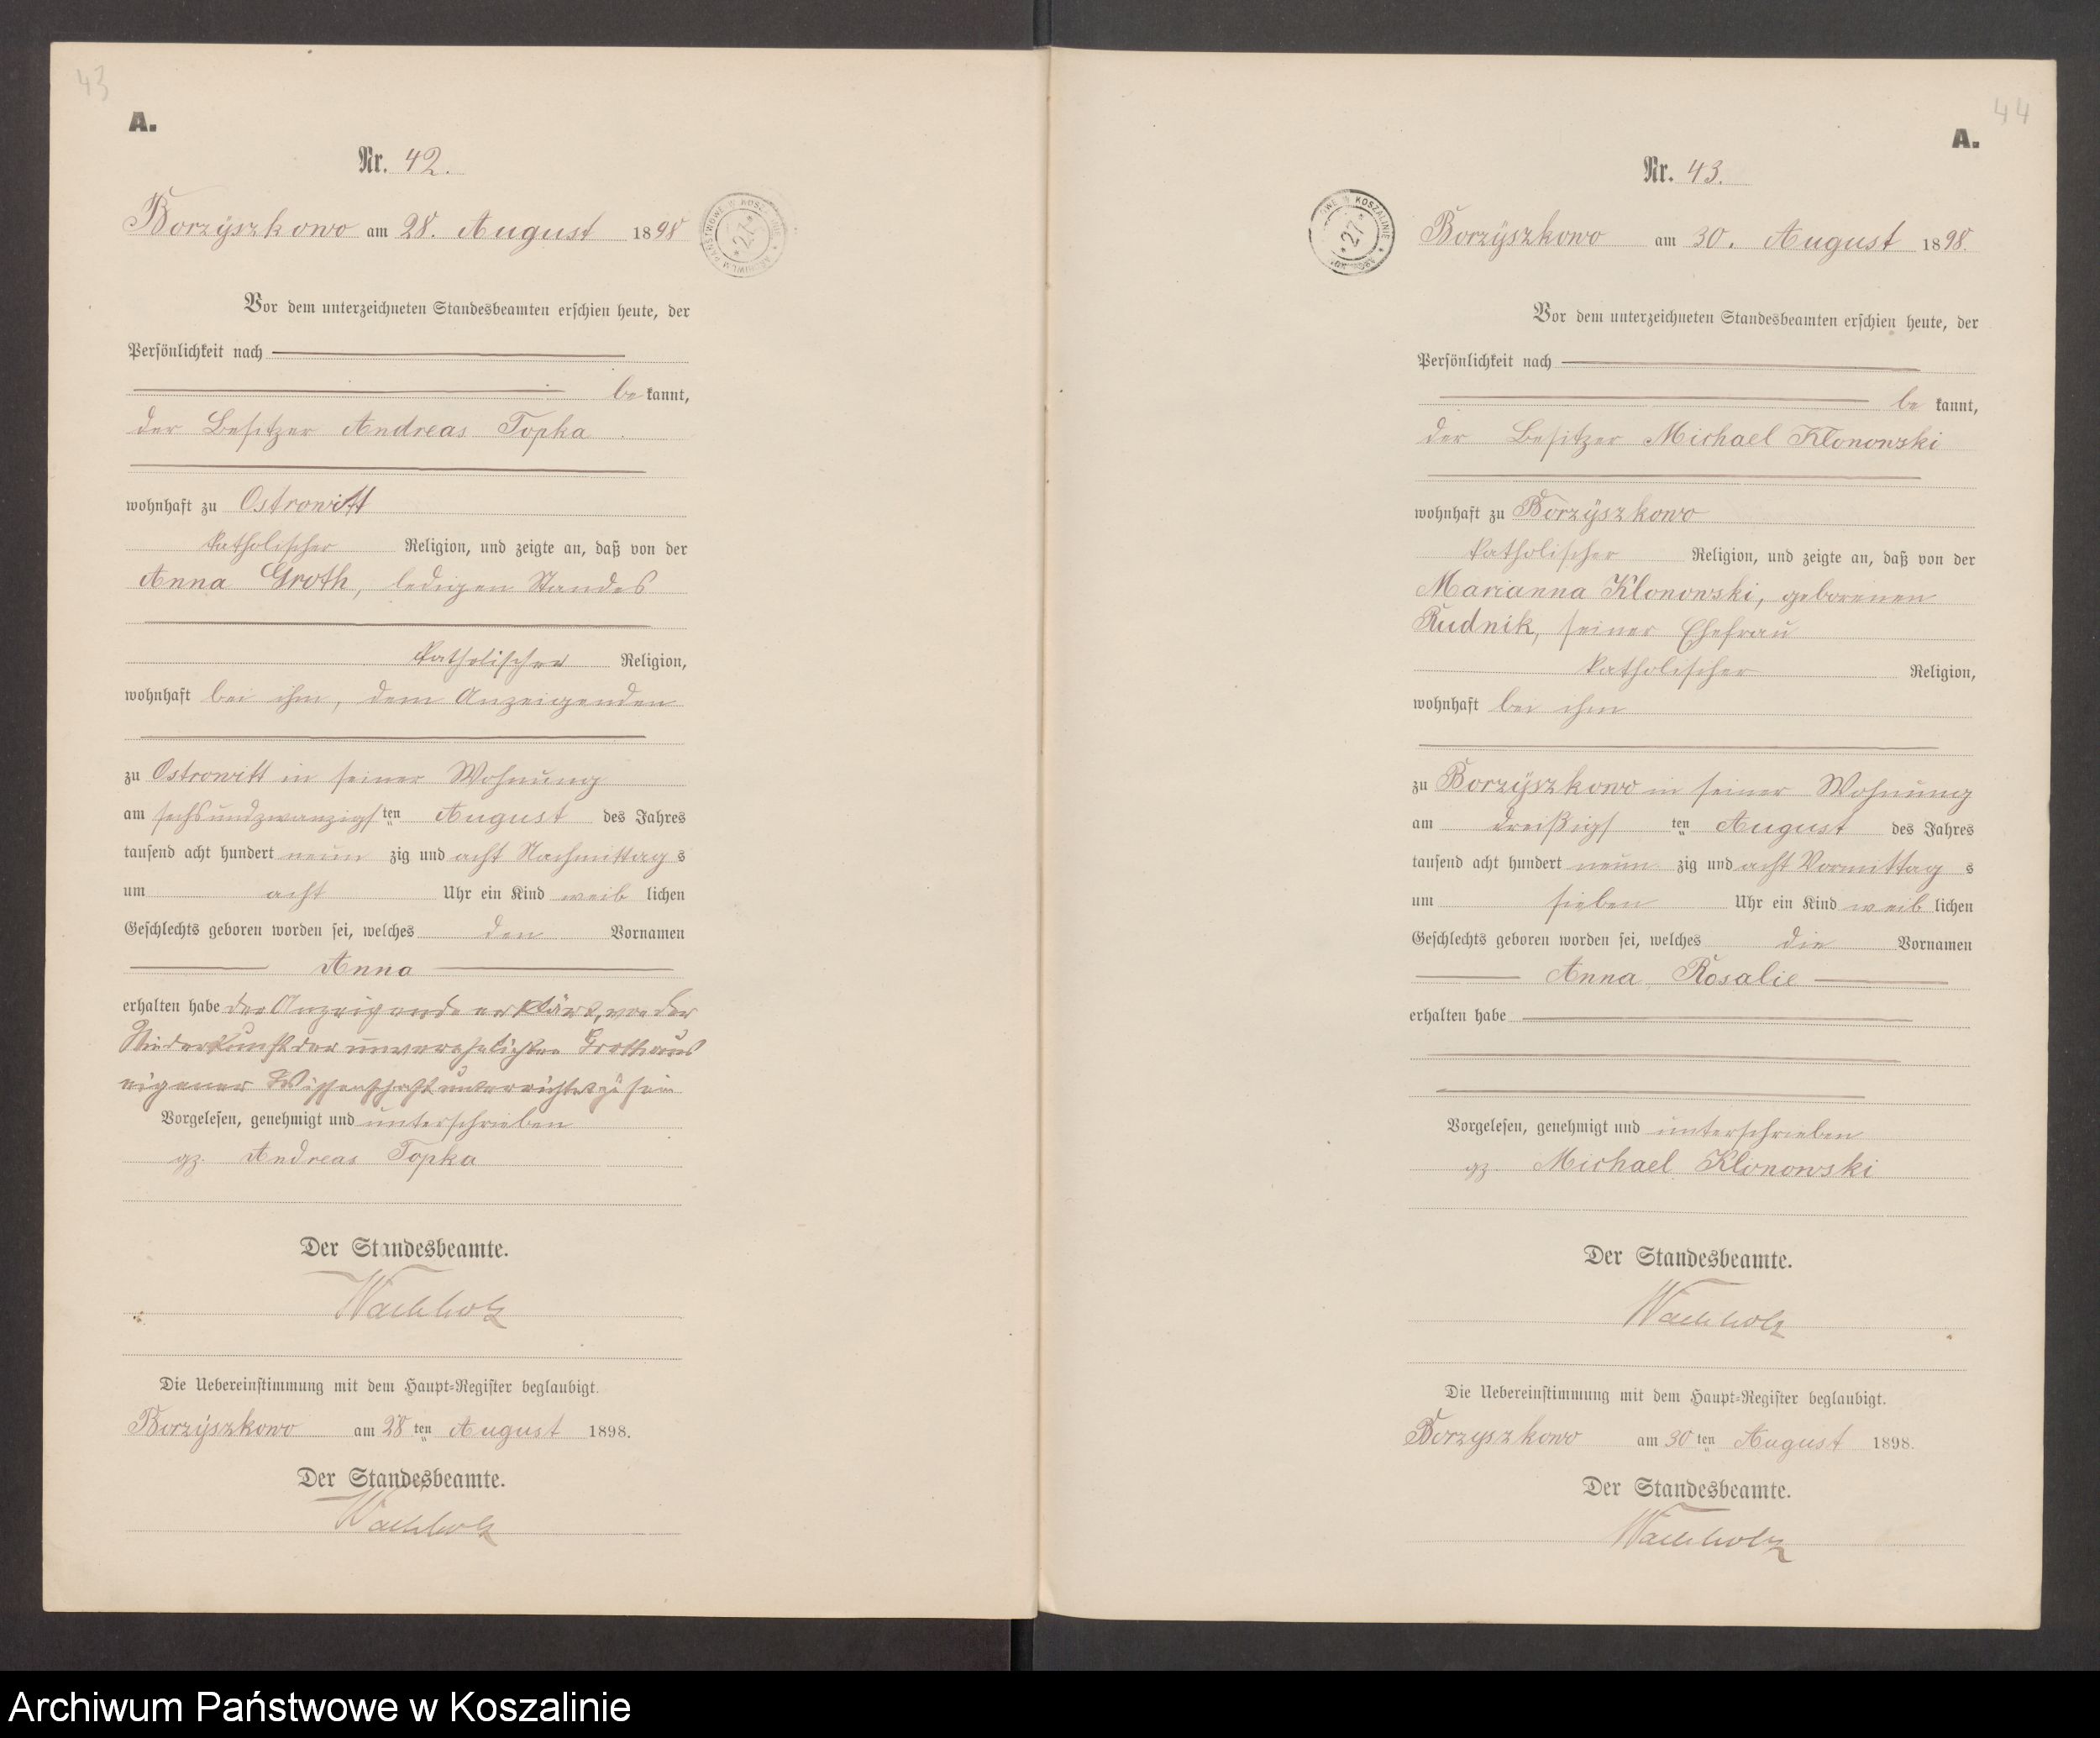 43
A.
Nr. 42.
Borzÿszkowo am 28. August 1898
ARCHIWUM PAŃSTWOWE W KOSZALINIE * 27 *
Vor dem unterzeichneten Standesbeamten erschien heute, der
Persönlichkeit nach
be kannt,
der Besitzer Andreas Topka
wohnhaft zu Ostrowitt
katholischer Religion, und zeigte an, daß von der
Anna Groth, ledigen Standes
katholischer Religion,
wohnhaft bei ihm, dem Anzeigenden
zu Ostrowitt in seiner Wohnung
am sechsundzwanzigs ten August des Jahres
tausend acht hundert neun zig und acht Nachmittag s
um acht Uhr ein Kind weib lichen
Geschlechts geboren worden sei, welches den Vornamen
Anna
erhalten habe der Anzeigende erklärt, von der
Niederkunft der unverehelichten Groth aus
eigener Wissenschaft unterrichtet zu sein
Vorgelesen, genehmigt und unterschrieben
gz. Andreas Topka
Der Standesbeamte.
Wachholz
Die Uebereinstimmung mit dem Haupt-Register beglaubigt.
Borzÿszkowo am 28 ten August 1898.
Der Standesbeamte.
Wachholz
44
A.
Nr. 43.
Borzÿszkowo am 30. August 1898.
* 27 *
Vor dem unterzeichneten Standesbeamten erschien heute, der
Persönlichkeit nach
be kannt,
der Besitzer Michael Klonowski
wohnhaft zu Borzÿszkowo
katholischer Religion, und zeigte an, daß von der
Marianna Klonowski, geborenen
Rudnik, seiner Ehefrau
katholischer Religion,
wohnhaft bei ihm
zu Borzÿszkowo in seiner Wohnung
am dreißigs ten August des Jahres
tausend acht hundert neun zig und acht Vormittag s
um sieben Uhr ein Kind weib lichen
Geschlechts geboren worden sei, welches die Vornamen
Anna Rosalie
erhalten habe
Vorgelesen, genehmigt und unterschrieben
gz. Michael Klonowski
Der Standesbeamte.
Wachholz
Die Uebereinstimmung mit dem Haupt-Register beglaubigt.
Borzyszkowo am 30 ten August 1898.
Der Standesbeamte.
Wachholz
Archiwum Państwowe w Koszalinie